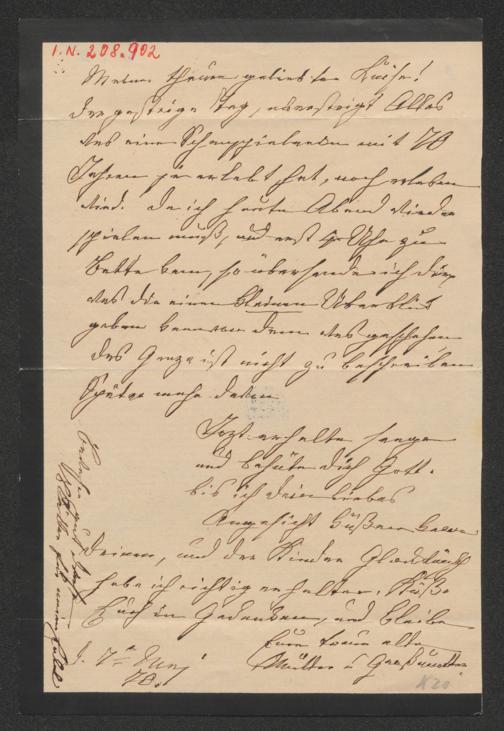 I. N. 208.902
Meine theure geliebte Luise!
Der gestrige Tag, übersteigt Alles
was eine Schauspielerin mit 70
Jahren je erlebt hat, noch erleben
wird. Da ich heute Abend wieder
spielen muß, und erst 4 Uhr zu
Bette kam, so übersende ich dir
das die einen kleinen Überblick
geben kann von dem was geschehen
das Ganze ist nicht zu beschreiben
Später mehr davon
Jetzt erhalte
und behüte dich Gott.
bis ich dein liebes
Angesicht küßen kann
Deinen, und der Kinder Glückw
habe ich richtig erhalten, Küße
Euch in Gedanken, und bleibe
Eure treue alte
Mutter u Großmutter
d. 7ten Juni
70.
K20